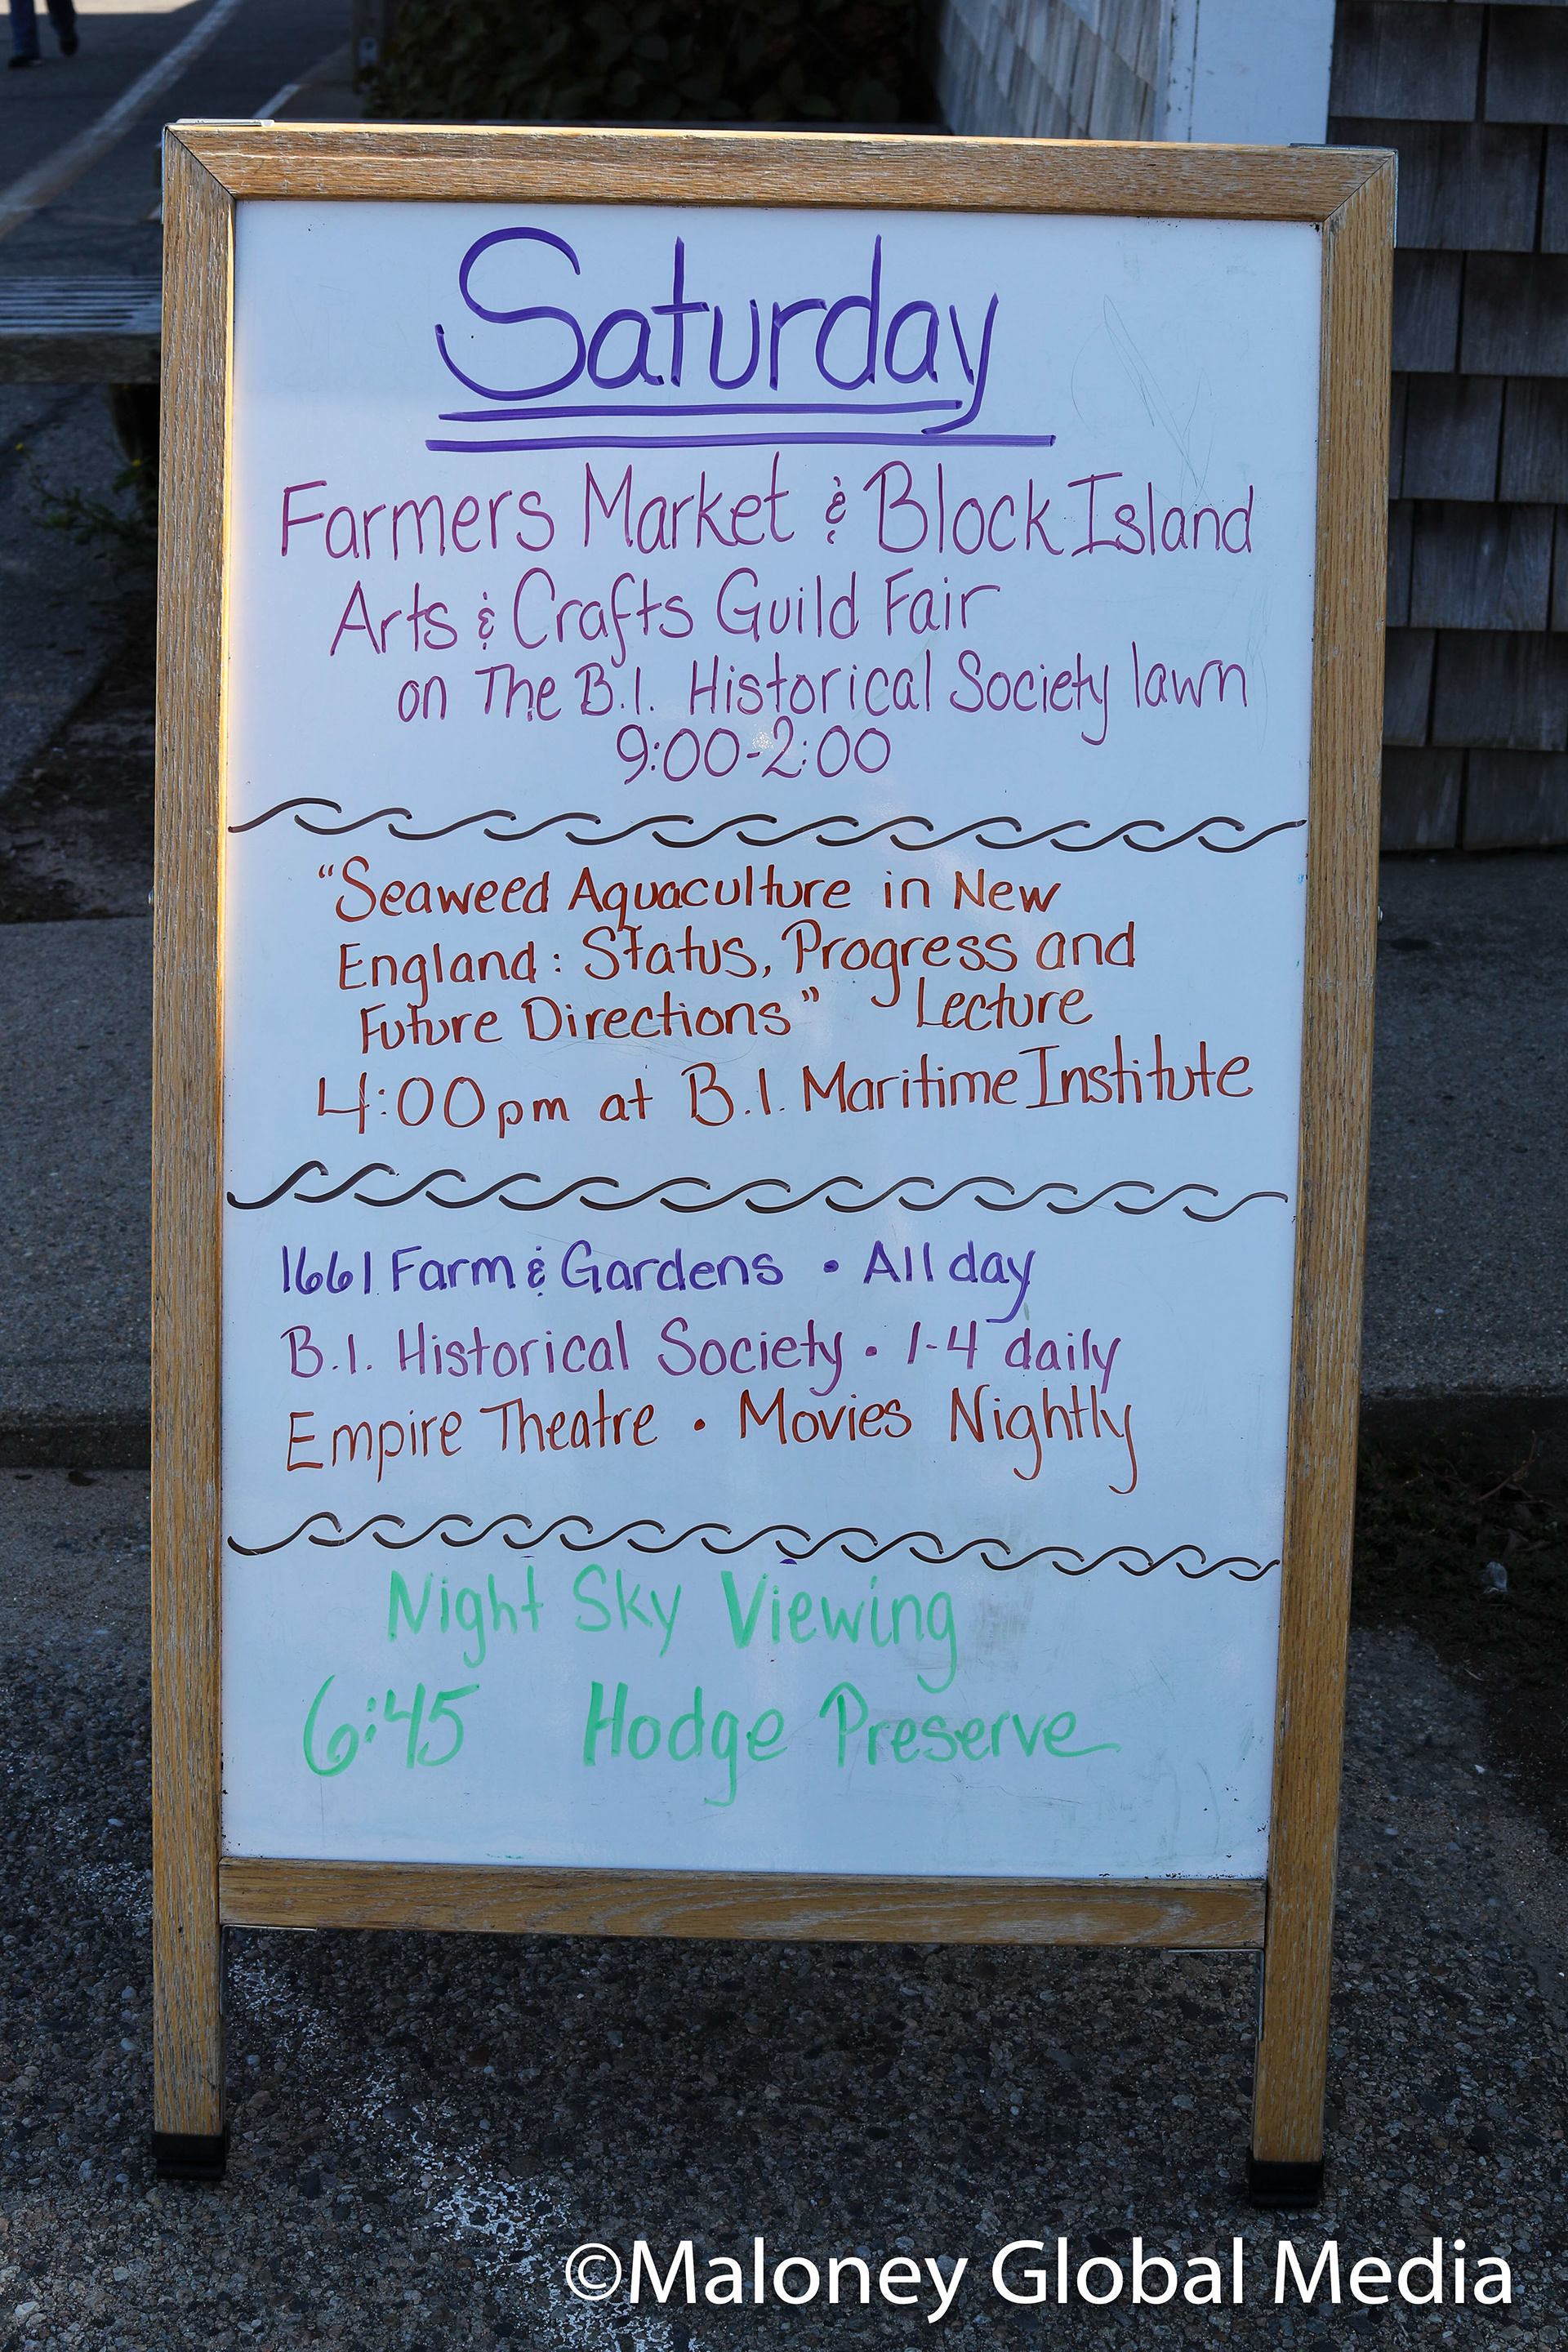 Saturday
Farmers Market & Block Island
Arts & Crafts Guild Fair
on The B.I. Historical Society lawn
9:00-2:00
"Seaweed Aquaculture in New
England: Status, Progress and
Future Directions" Lecture
4:00pm at B.I. Maritime Institute
1661 Farm & Gardens • All day
B.I. Historical Society • 1-4 daily
Empire Theatre • Movies Nightly
Night Sky Viewing
6:45 Hodge Preserve
©Maloney Global Media